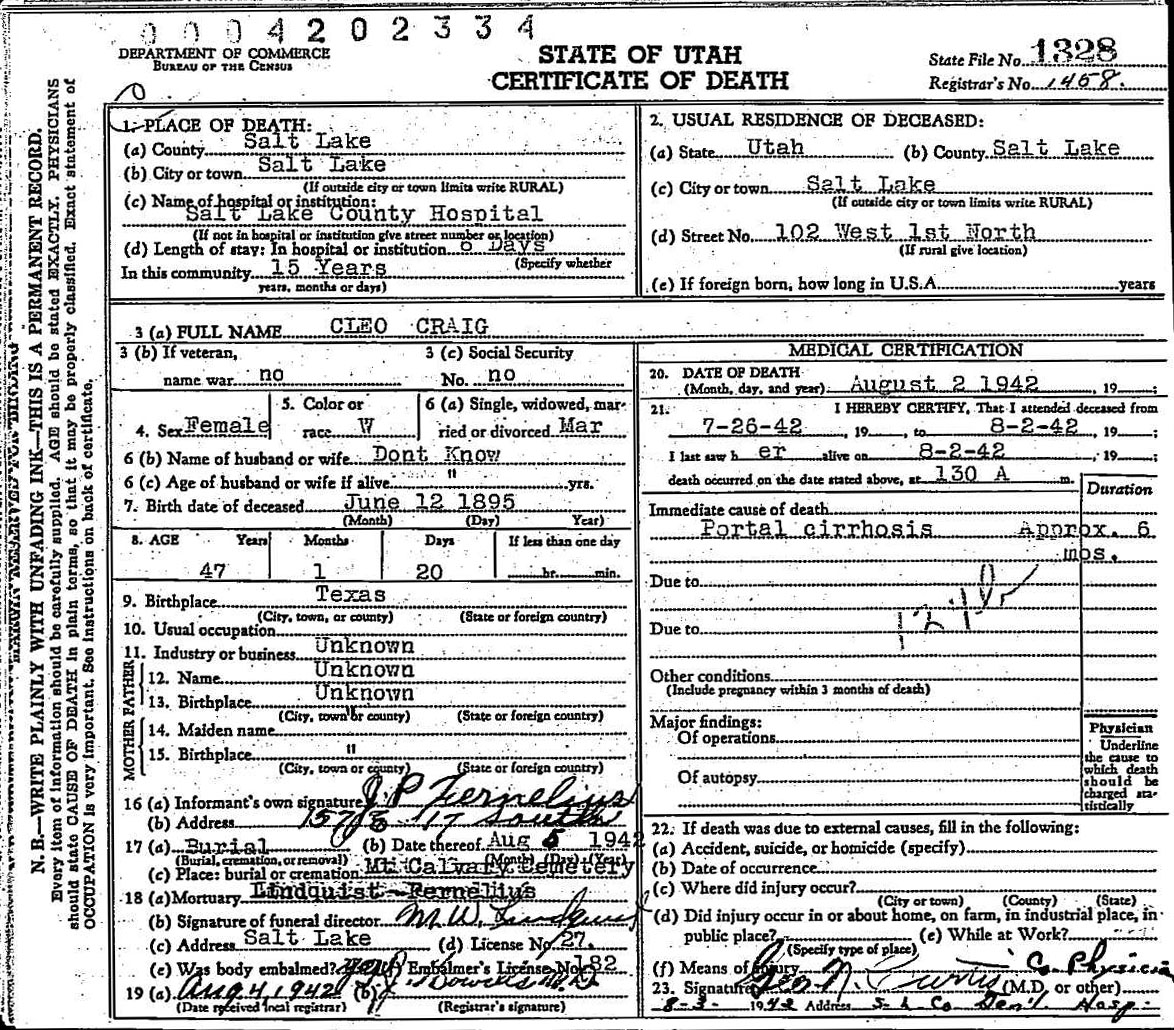 0004202334
DEPARTMENT OF COMMERCE
BUREAU OF THE CENSUS
STATE OF UTAH
CERTIFICATE OF DEATH
State File No. 1328
Registrar's No. 1458.
N. B.—WRITE PLAINLY WITH UNFADING INK—THIS IS A PERMANENT RECORD.
Every item of information should be carefully supplied. AGE should be stated EXACTLY. PHYSICIANS
should state CAUSE OF DEATH in plain terms, so that it may be properly classified. Exact statement of
OCCUPATION is very important. See instructions on back of certificate.
1. PLACE OF DEATH:
(a) County Salt Lake
(b) City or town Salt Lake
(If outside city or town limits write RURAL)
(c) Name of hospital or institution:
Salt Lake County Hospital
(If not in hospital or institution give street number or location)
(d) Length of stay: In hospital or institution Days
(Specify whether
In this community 15 Years
years, months or days)
2. USUAL RESIDENCE OF DECEASED:
(a) State Utah (b) County Salt Lake
(c) City or town Salt Lake
(If outside city or town limits write RURAL)
(d) Street No. 102 West 1st North
(If rural give location)
(e) If foreign born, how long in U.S.A. years
3 (a) FULL NAME CLEO CRAIG
3 (b) If veteran, 3 (c) Social Security
name war no No. no
4. Sex Female 5. Color or race W 6 (a) Single, widowed, married or divorced Mar
6 (b) Name of husband or wife Dont Know
6 (c) Age of husband or wife if alive " yrs.
7. Birth date of deceased June 12 1895
(Month) (Day) Year)
8. AGE Years Months Days If less than one day
47 1 20 hr. min.
9. Birthplace Texas
(City, town, or county) (State or foreign country)
10. Usual occupation
11. Industry or business Unknown
FATHER
12. Name Unknown
13. Birthplace Unknown
(City, town or county) (State or foreign country)
MOTHER
14. Maiden name "
15. Birthplace "
(City, town or county) (State or foreign country)
16 (a) Informant's own signature J. P. Fernelius
(b) Address 17 South
17 (a) Burial (b) Date thereof Aug 5 1942
(Burial, cremation, or removal) (Month) (Day) (Year)
(c) Place: burial or cremation Mt Calvary Cemetery
18 (a) Mortuary Lindquist-Fernelius
(b) Signature of funeral director M. W. Lindquist
(c) Address Salt Lake (d) License No. 27.
(e) Was body embalmed? yes Embalmer's License No. 182
19 (a) Aug 4, 1942 (b)
(Date received local registrar) (Registrar's signature)
MEDICAL CERTIFICATION
20. DATE OF DEATH
(Month, day, and year) August 2 1942 , 19 ;
21. I HEREBY CERTIFY, That I attended deceased from
7-26-42 , 19 , to 8-2-42 , 19 ;
I last saw h er alive on 8-2-42 , 19 ;
death occurred on the date stated above, at 130 A m.
Duration
Immediate cause of death
Portal cirrhosis Approx. 6
mos.
Due to
Due to
Other conditions
(Include pregnancy within 3 months of death)
Major findings:
Of operations
Of autopsy
Physician
Underline
the cause to
which death
should be
charged sta-
tistically
22. If death was due to external causes, fill in the following:
(a) Accident, suicide, or homicide (specify)
(b) Date of occurrence
(c) Where did injury occur?
(City or town) (County) (State)
(d) Did injury occur in or about home, on farm, in industrial place, in
public place? (e) While at Work?
(Specify type of place)
(f) Means of injury Co. Physicia
23. Signature Geo N. Curtis (M.D. or other)
8-3- 1942 Address S-L Co Gen'l Hosp.